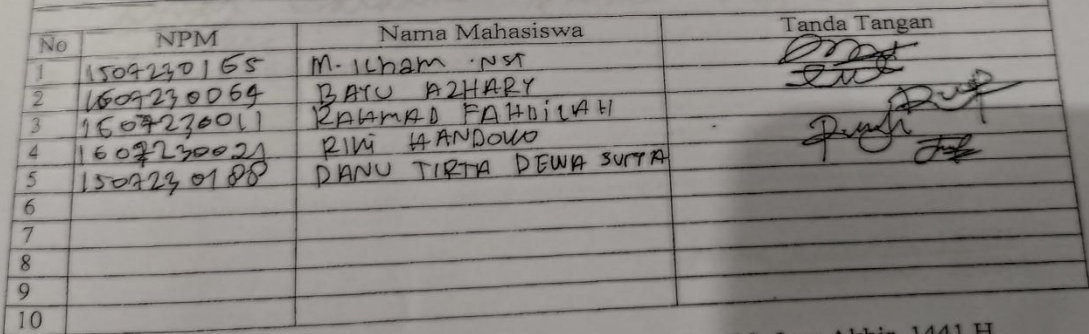 No NPM Nama Mahasiswa Tanda Tangan
1 1507230165 M. ilham .NST
2 1607230064 BAYU AZHARY
3 1607230011 RAHMAD FAHDILAH
4 1607230021 RIKI HANDOKO
5 1507230188 DANU TIRTA DEWA SURYA
6
7
8
9
10
Akhir 1441 H